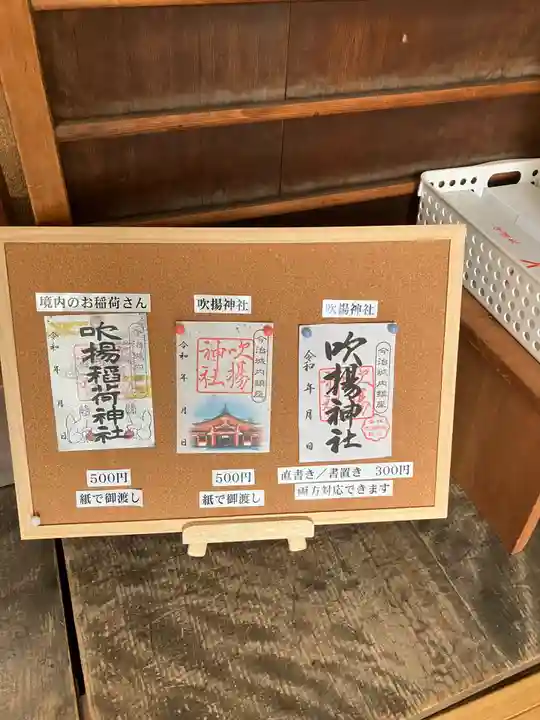 境内のお稲荷さん
今治城内
吹揚稲荷神社
令和 年 月 日
500円
紙で御渡し
吹揚神社
今治城内鎮座
吹揚
神社
令和 年 月 日
500円
紙で御渡し
吹揚神社
今治城内鎮座
吹揚神社
令和 年 月 日
直書き／書置き 300円
両方対応できます